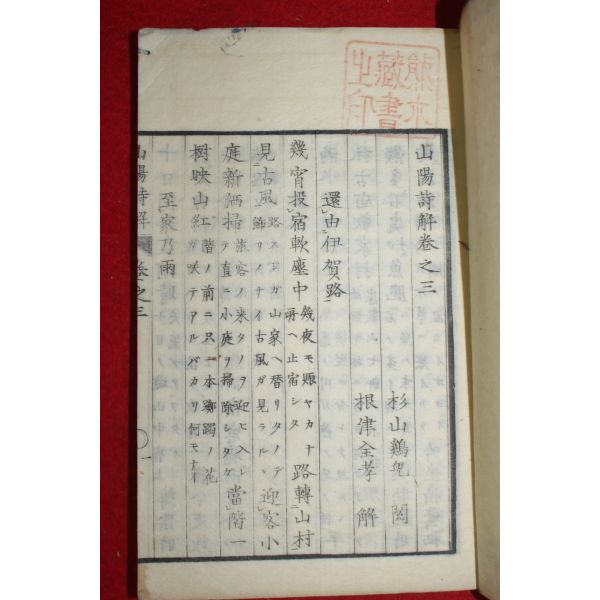 山陽詩解卷之三
杉山鷄兒 閲
根津全孝 解
還由伊賀路
幾宵投宿軟塵中 幾夜モ賑ヤカナ所ヘ止宿シタ 路轉山村
見古風 路スヂガ山家ヘ替リタノデ飾リノナイ古風ガ見ラルヽ 迎客小
庭新洒掃 旅客ノ來タノヲ迎ヒ入レテ直ニ小庭ヲ掃除シタガ 當階一
樹映山紅 階ノ前ニ只一本躑躅ノ花ガ咲テアルバカリ何モナイ
至家乃雨
山陽詩解 卷之三 一
藏書
之印